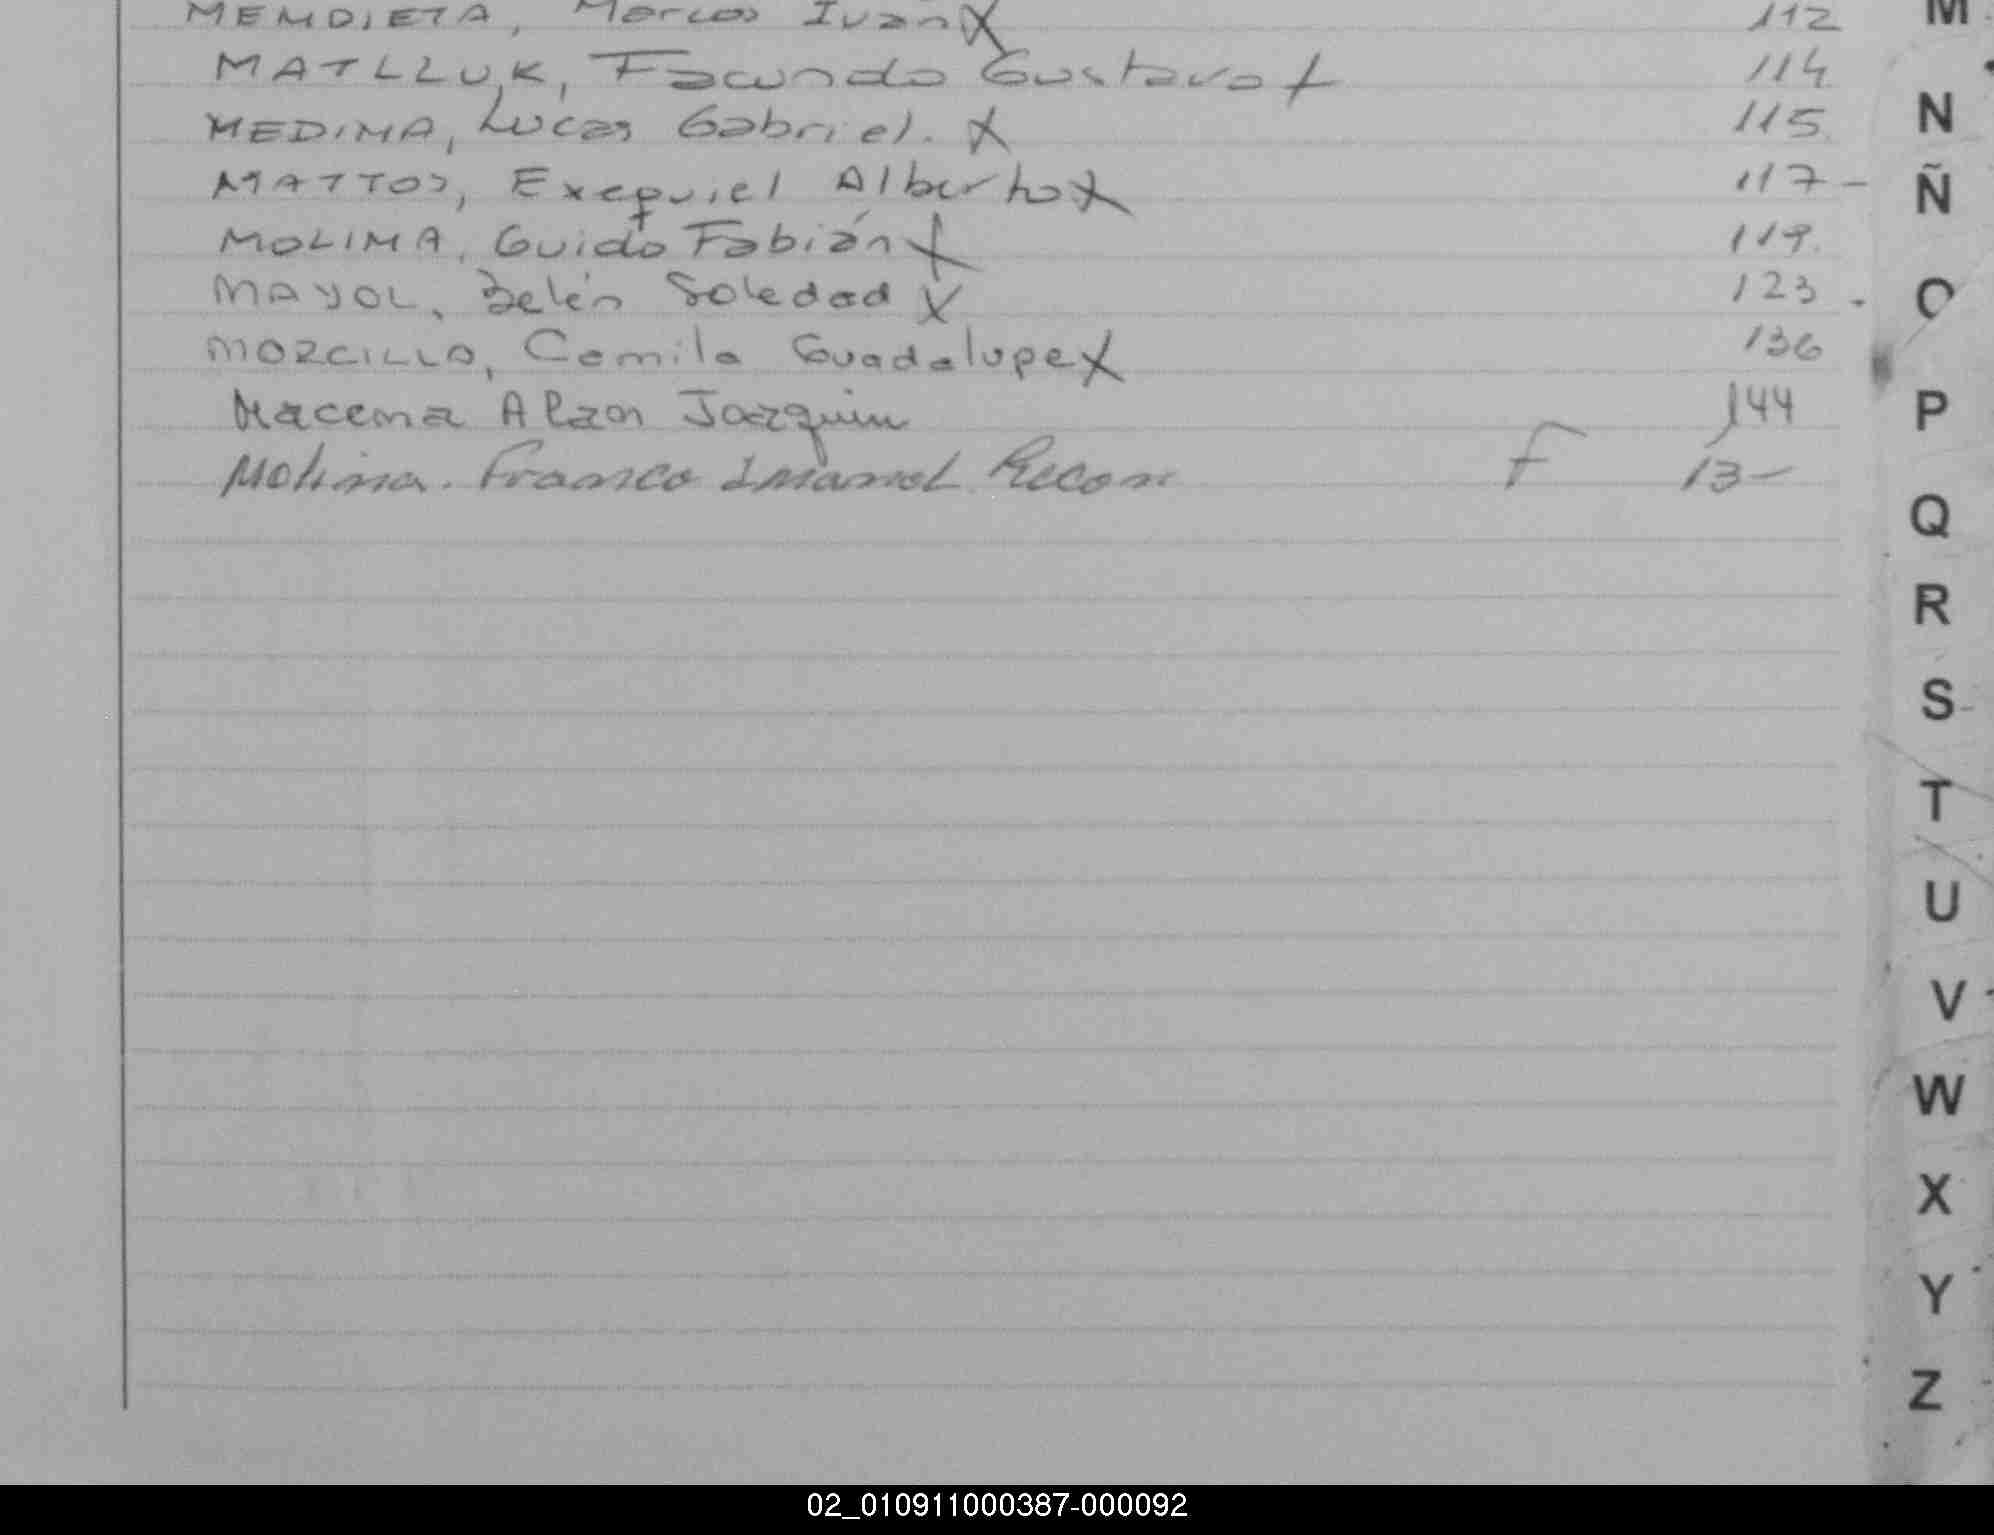 MENDIETA, Marcos Ivan X 112
MATLLUK, Facundo Gustavo X 114
MEDINA, Lucas Gabriel. X 115
MATTOS, Exequiel Alberto X 117 -
MOLINA, Guido Fabián X 119.
MAYOL, Belén Soledad X 123.
MORCILLO, Camila Guadalupe X 136
Macena Alan Joaquin 144
Molina. Franco Imanol Recon F 13-
M
N
Ñ
O
P
Q
R
S
T
U
V
W
X
Y
Z
02_010911000387-000092